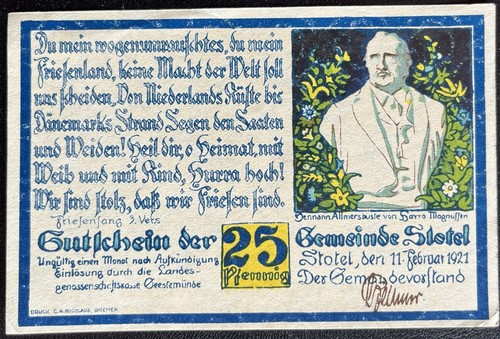 Du mein wogenumrauschtes, du mein
Friesenland, keine Macht der Welt soll
uns scheiden. Von Niederlands Küste bis
Dänemarks Strand Segen den Saaten
und Weiden! Heil dir, o Heimat, mit
Weib und mit Kind, Hurra hoch!
Wir sind stolz, daß wir Friesen sind.
Friesensang 3. Vers
Hermann Allmersbüste von Harro Magnussen
Gutschein der
25
Pfennig
Gemeinde Stotel
Ungültig einen Monat nach Aufkündigung
Einlösung durch die Landes-
genossenschaftskasse Geestemünde
Stotel, den 11. Februar 1921
Der Gemeindevorstand
DRUCK C.A. NICOLAUS, BREMEN